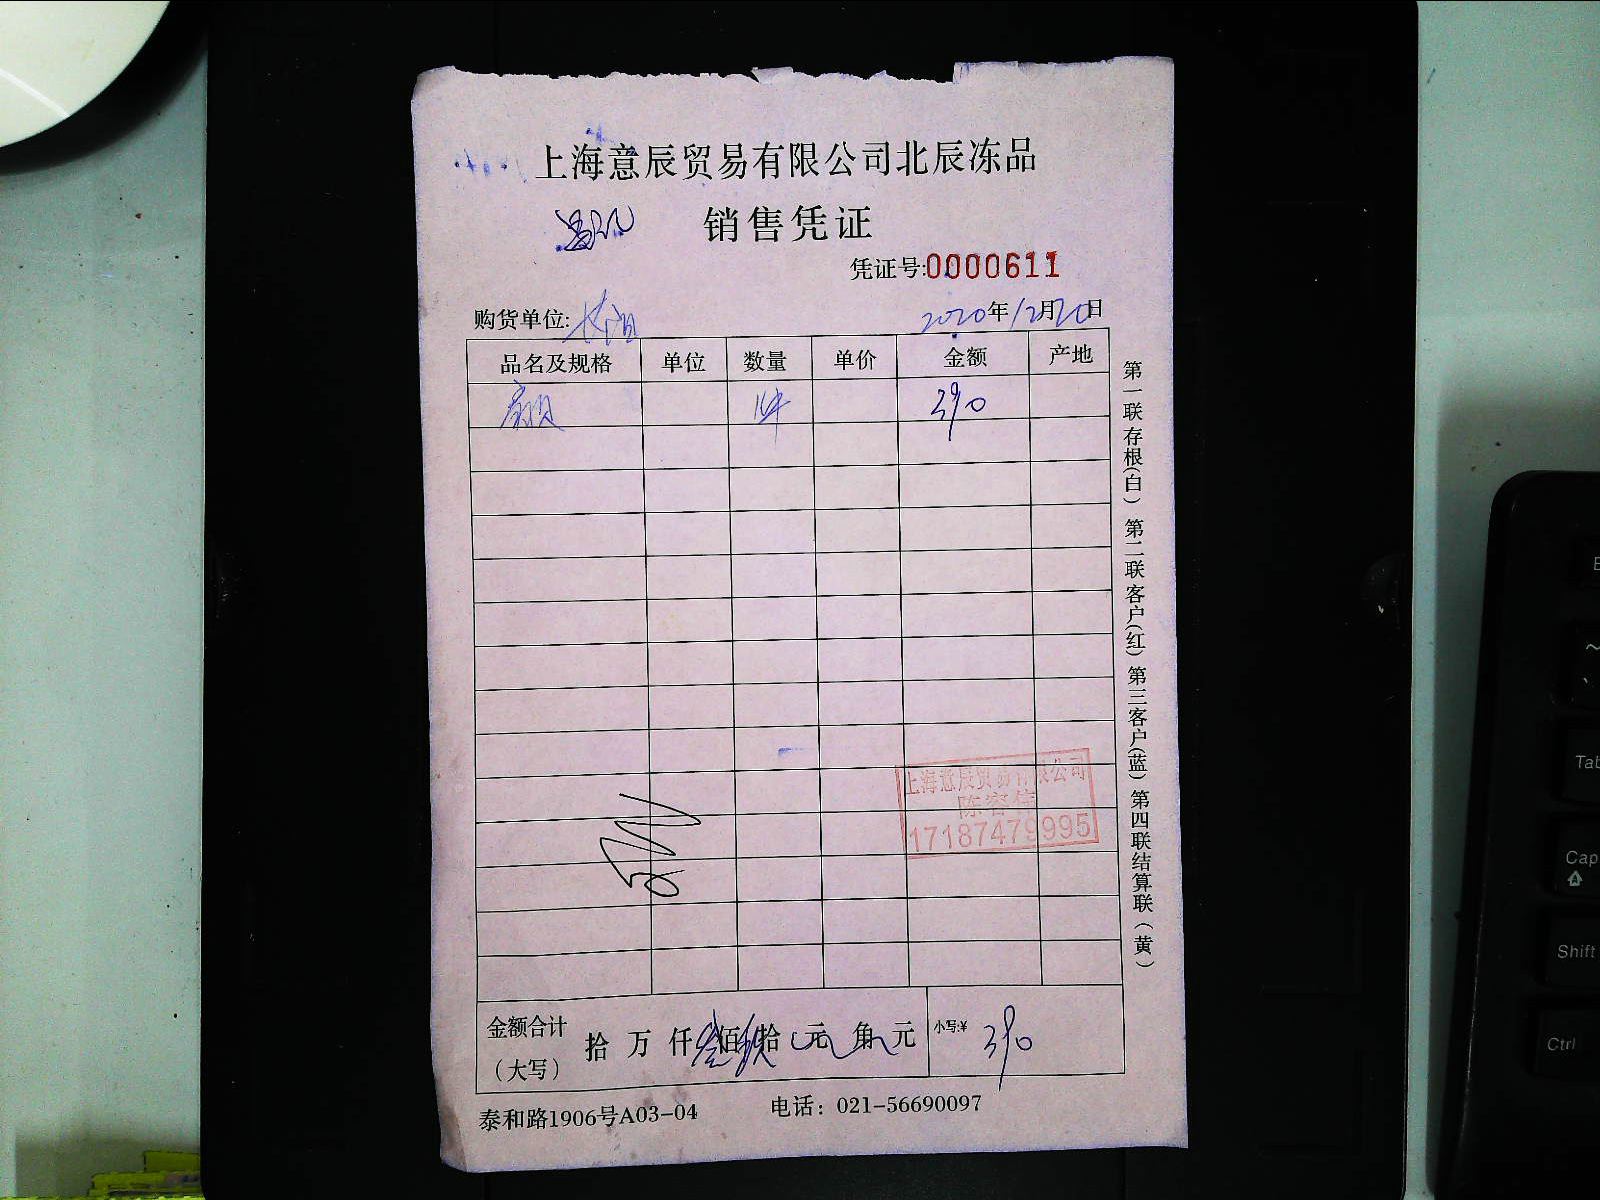 上海意辰贸易有限公司北辰冻品
销售凭证
凭证号:0000611
购货单位:
2020年12月20日
品名及规格 单位 数量 单价 金额 产地
1件 390
第一联存根(白) 第二联客户(红) 第三客户(蓝) 第四联结算联(黄)
上海意辰贸易有限公司
17187479995
金额合计
(大写)
拾 万 仟 叁佰 玖拾 元 角 元
小写:¥ 390
泰和路1906号A03-04 电话: 021-56690097